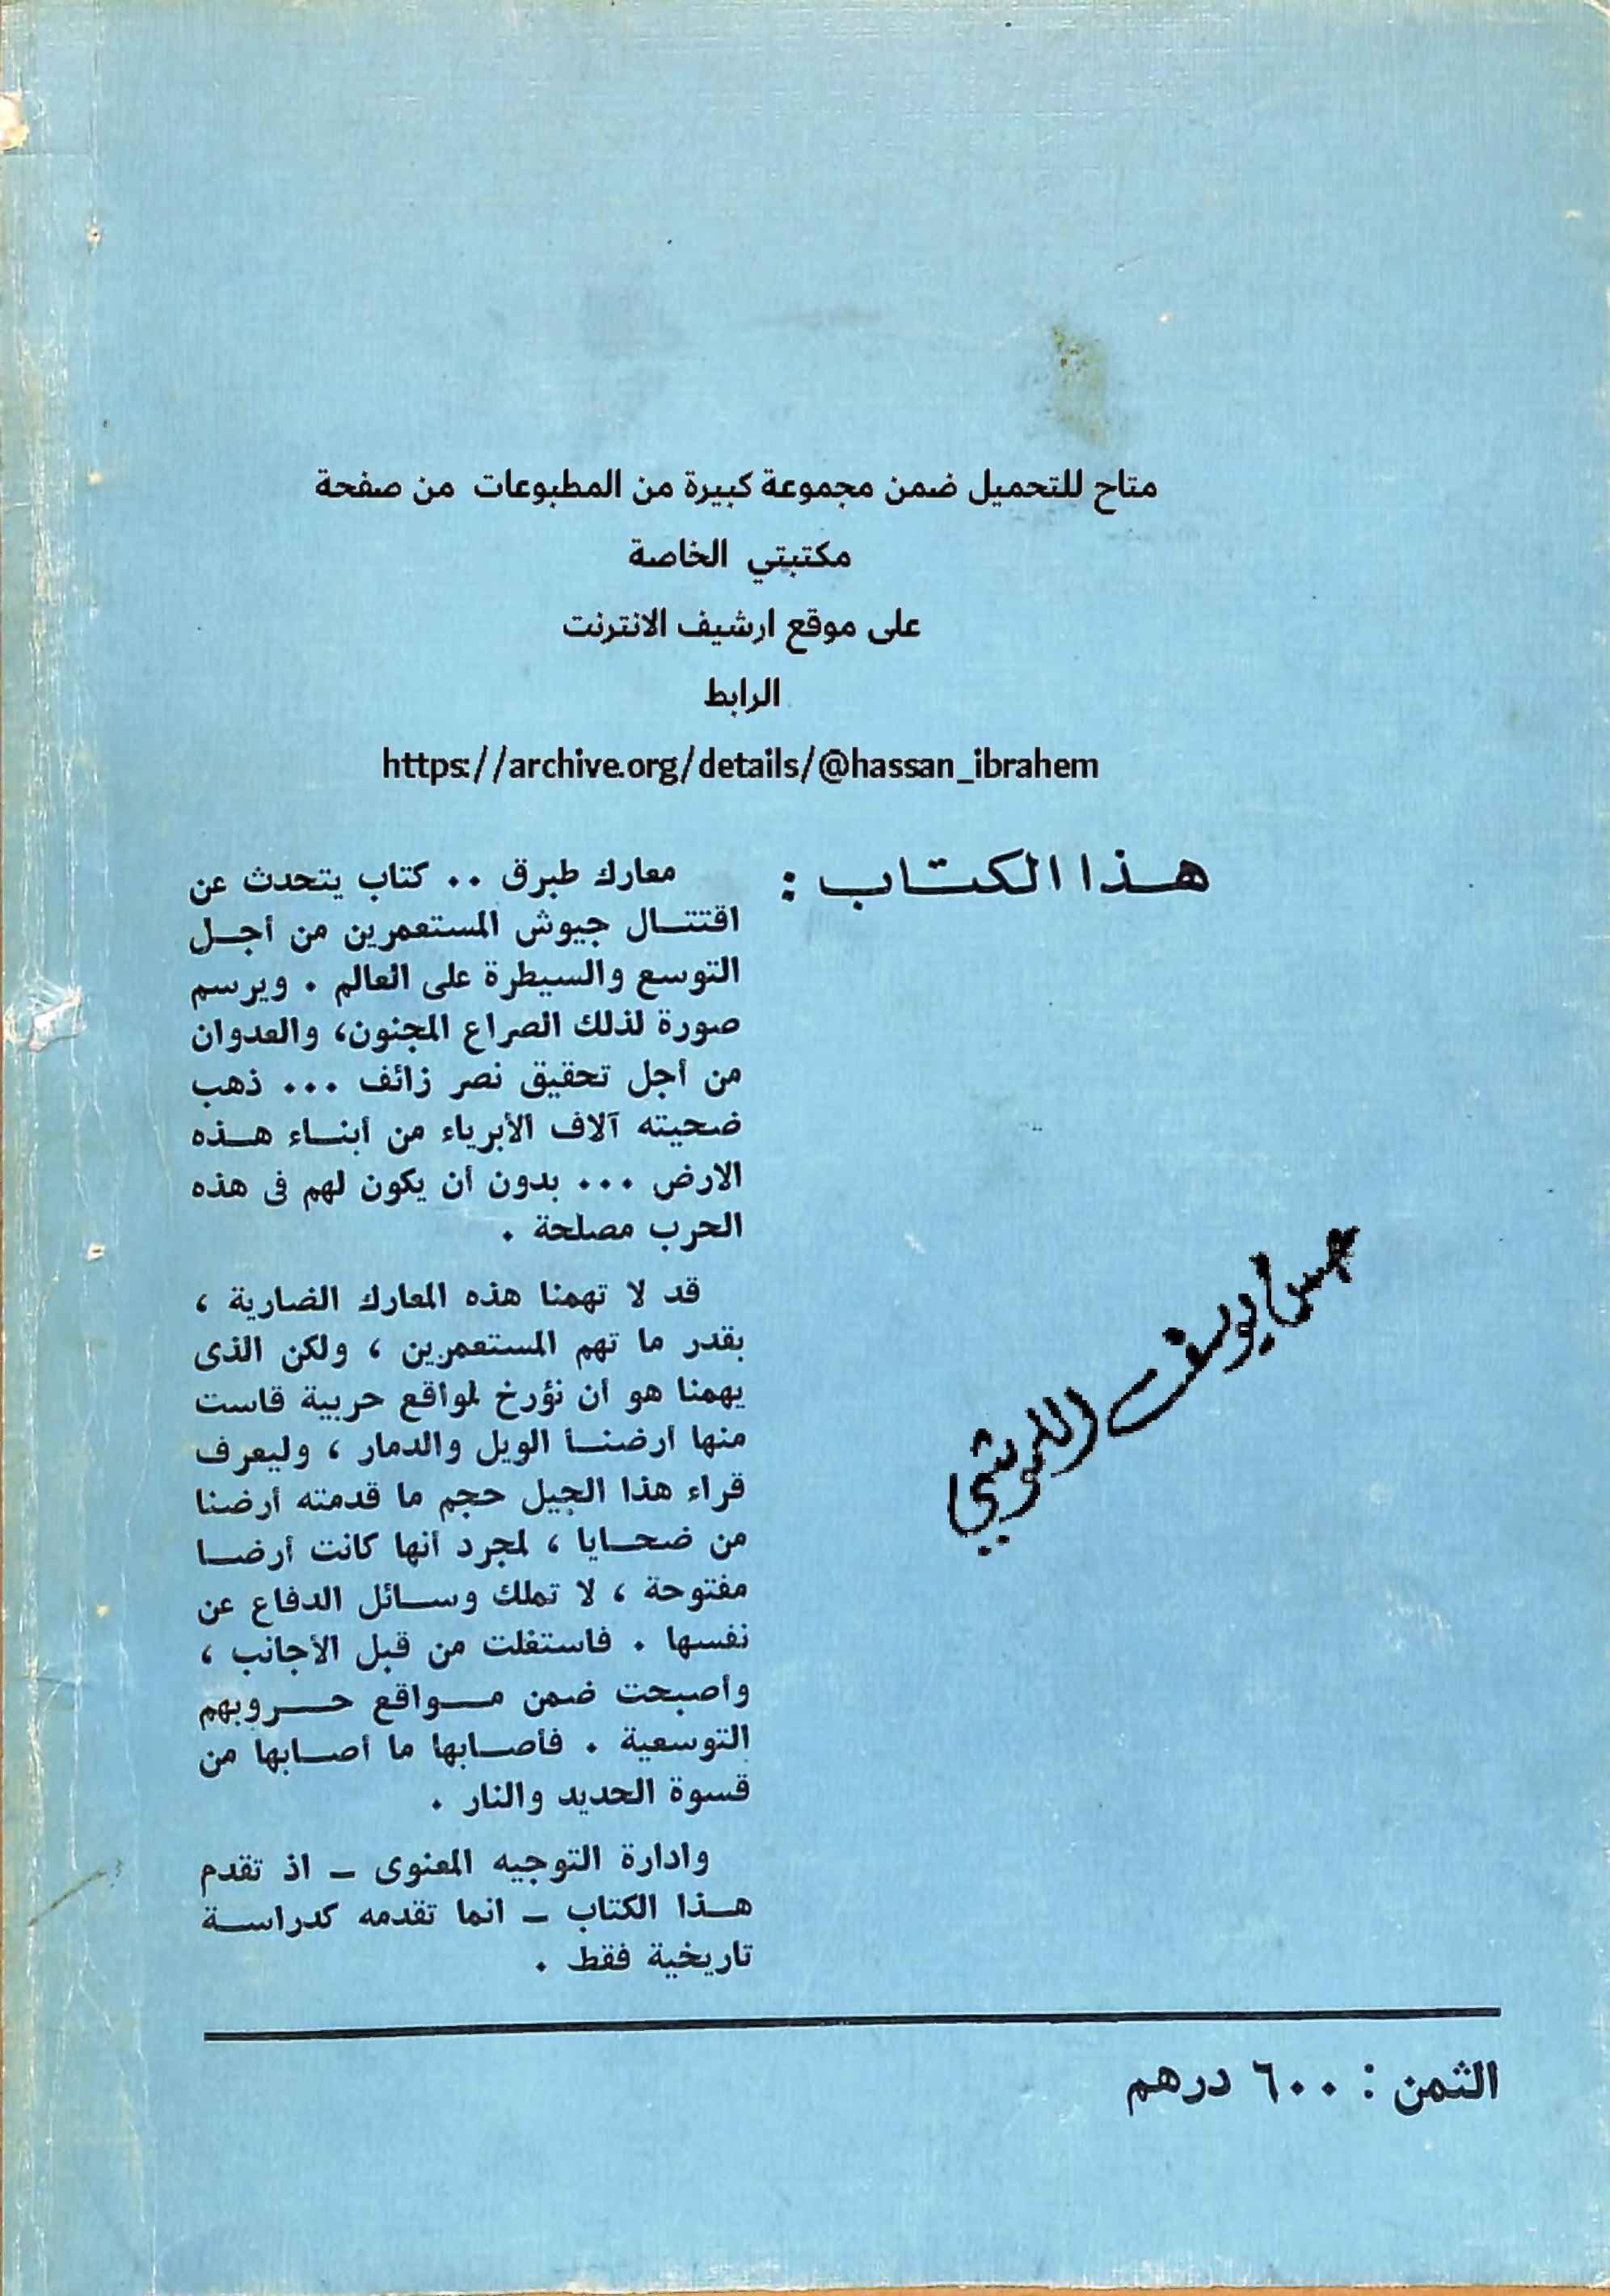 متاح للتحميل ضمن مجموعة كبيرة من المطبوعات من صفحة
مكتبتي الخاصة
على موقع ارشيف الانترنت
الرابط
https://archive.org/details/@hassan_ibrahem
هذا الكتاب :
معارك طبرق .. كتاب يتحدث عن
اقتتال جيوش المستعمرين من أجل
التوسع والسيطرة على العالم . ويرسم
صورة لذلك الصراع المجنون، والعدوان
من أجل تحقيق نصر زائف ... ذهب
ضحيته آلاف الأبرياء من أبناء هذه
الارض ... بدون أن يكون لهم فى هذه
الحرب مصلحة .
قد لا تهمنا هذه المعارك الضارية ،
بقدر ما تهم المستعمرين ، ولكن الذى
يهمنا هو أن نؤرخ لمواقع حربية قاست
منها أرضنا الويل والدمار ، وليعرف
قراء هذا الجيل حجم ما قدمته أرضنا
من ضحايا ، لمجرد أنها كانت أرضا
مفتوحة ، لا تملك وسائل الدفاع عن
نفسها . فاستغلت من قبل الأجانب ،
وأصبحت ضمن مواقع حروبهم
التوسعية . فأصابها ما أصابها من
قسوة الحديد والنار .
وادارة التوجيه المعنوى - اذ تقدم
هذا الكتاب - انما تقدمه كدراسة
تاريخية فقط .
يوسف
الثمن : ٦٠٠ درهم